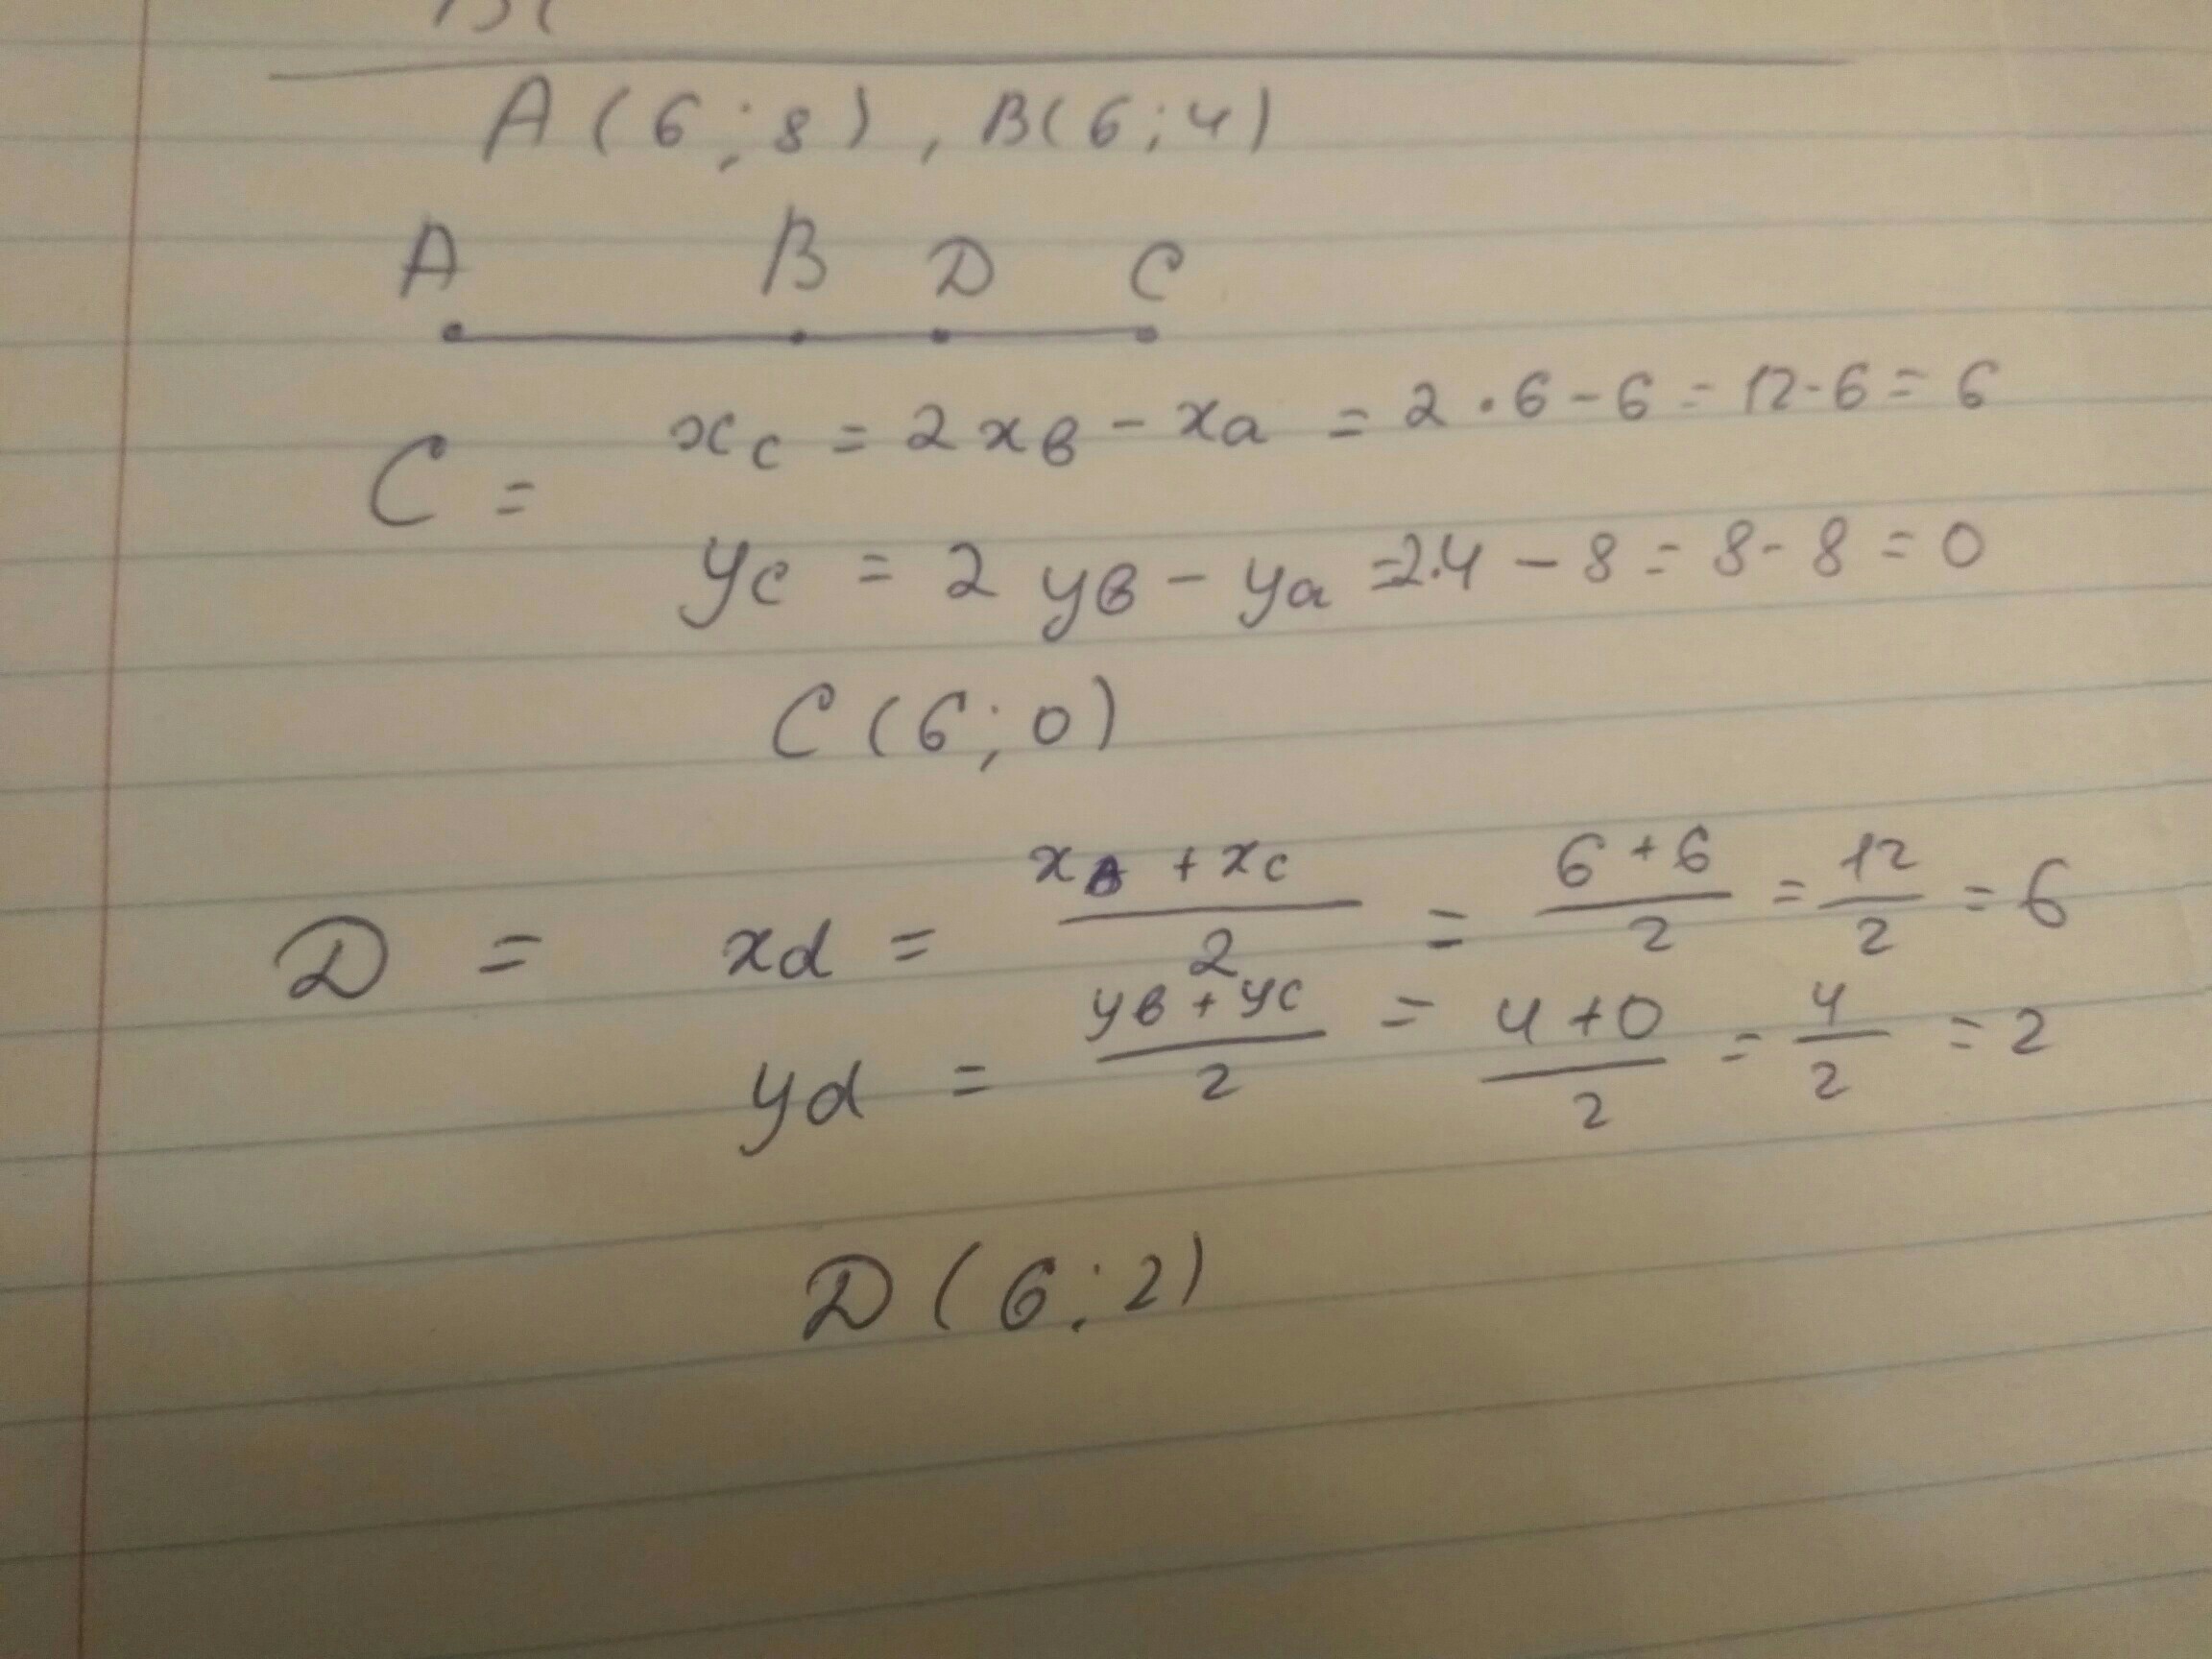 A(6;8), B(6;4)
A B D C
xc = 2xв - xa = 2·6-6 = 12-6 = 6
C =
yc = 2yв - ya = 2·4 - 8 = 8-8 = 0
C(6;0)
D = xd = (xв + xc)/2 = (6+6)/2 = 12/2 = 6
yd = (yв + yc)/2 = (4+0)/2 = 4/2 = 2
D(6;2)